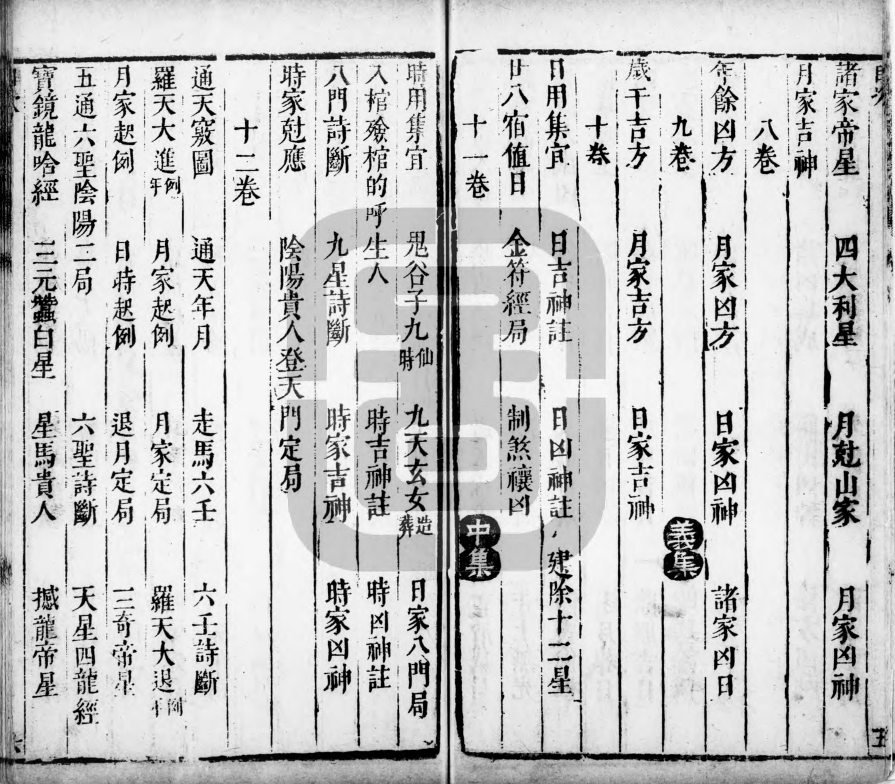 諸家帝星 四大利星 月尅山家 月家凶神
月家吉神
八卷
年餘凶方 月家凶方 日家凶神 諸家凶日
九卷 義集
歲干吉方 月家吉方 日家吉神
十卷
日用集宜 日吉神註 日凶神註 建除十二星
廿八宿值日 金符經局 制煞禳凶
十一卷 中集
時用集宜 鬼谷子九仙時 九天玄女造葬 日家八門局
入棺殮棺的呼生人 時吉神註 時凶神註
八門詩斷 九星詩斷 時家吉神 時家凶神
時家尅應 陰陽貴人登天門定局
十二卷
通天竅圖 通天年月 走馬六壬 六壬詩斷
羅天大進例年 月家起例 月家定局 羅天大退例年
月家起例 日時起例 退月定局 三奇帝星
五通六聖陰陽二局 六聖詩斷 天星四龍經
寶鏡龍唅經 三元蠶白星 星馬貴人 撼龍帝星
六
五